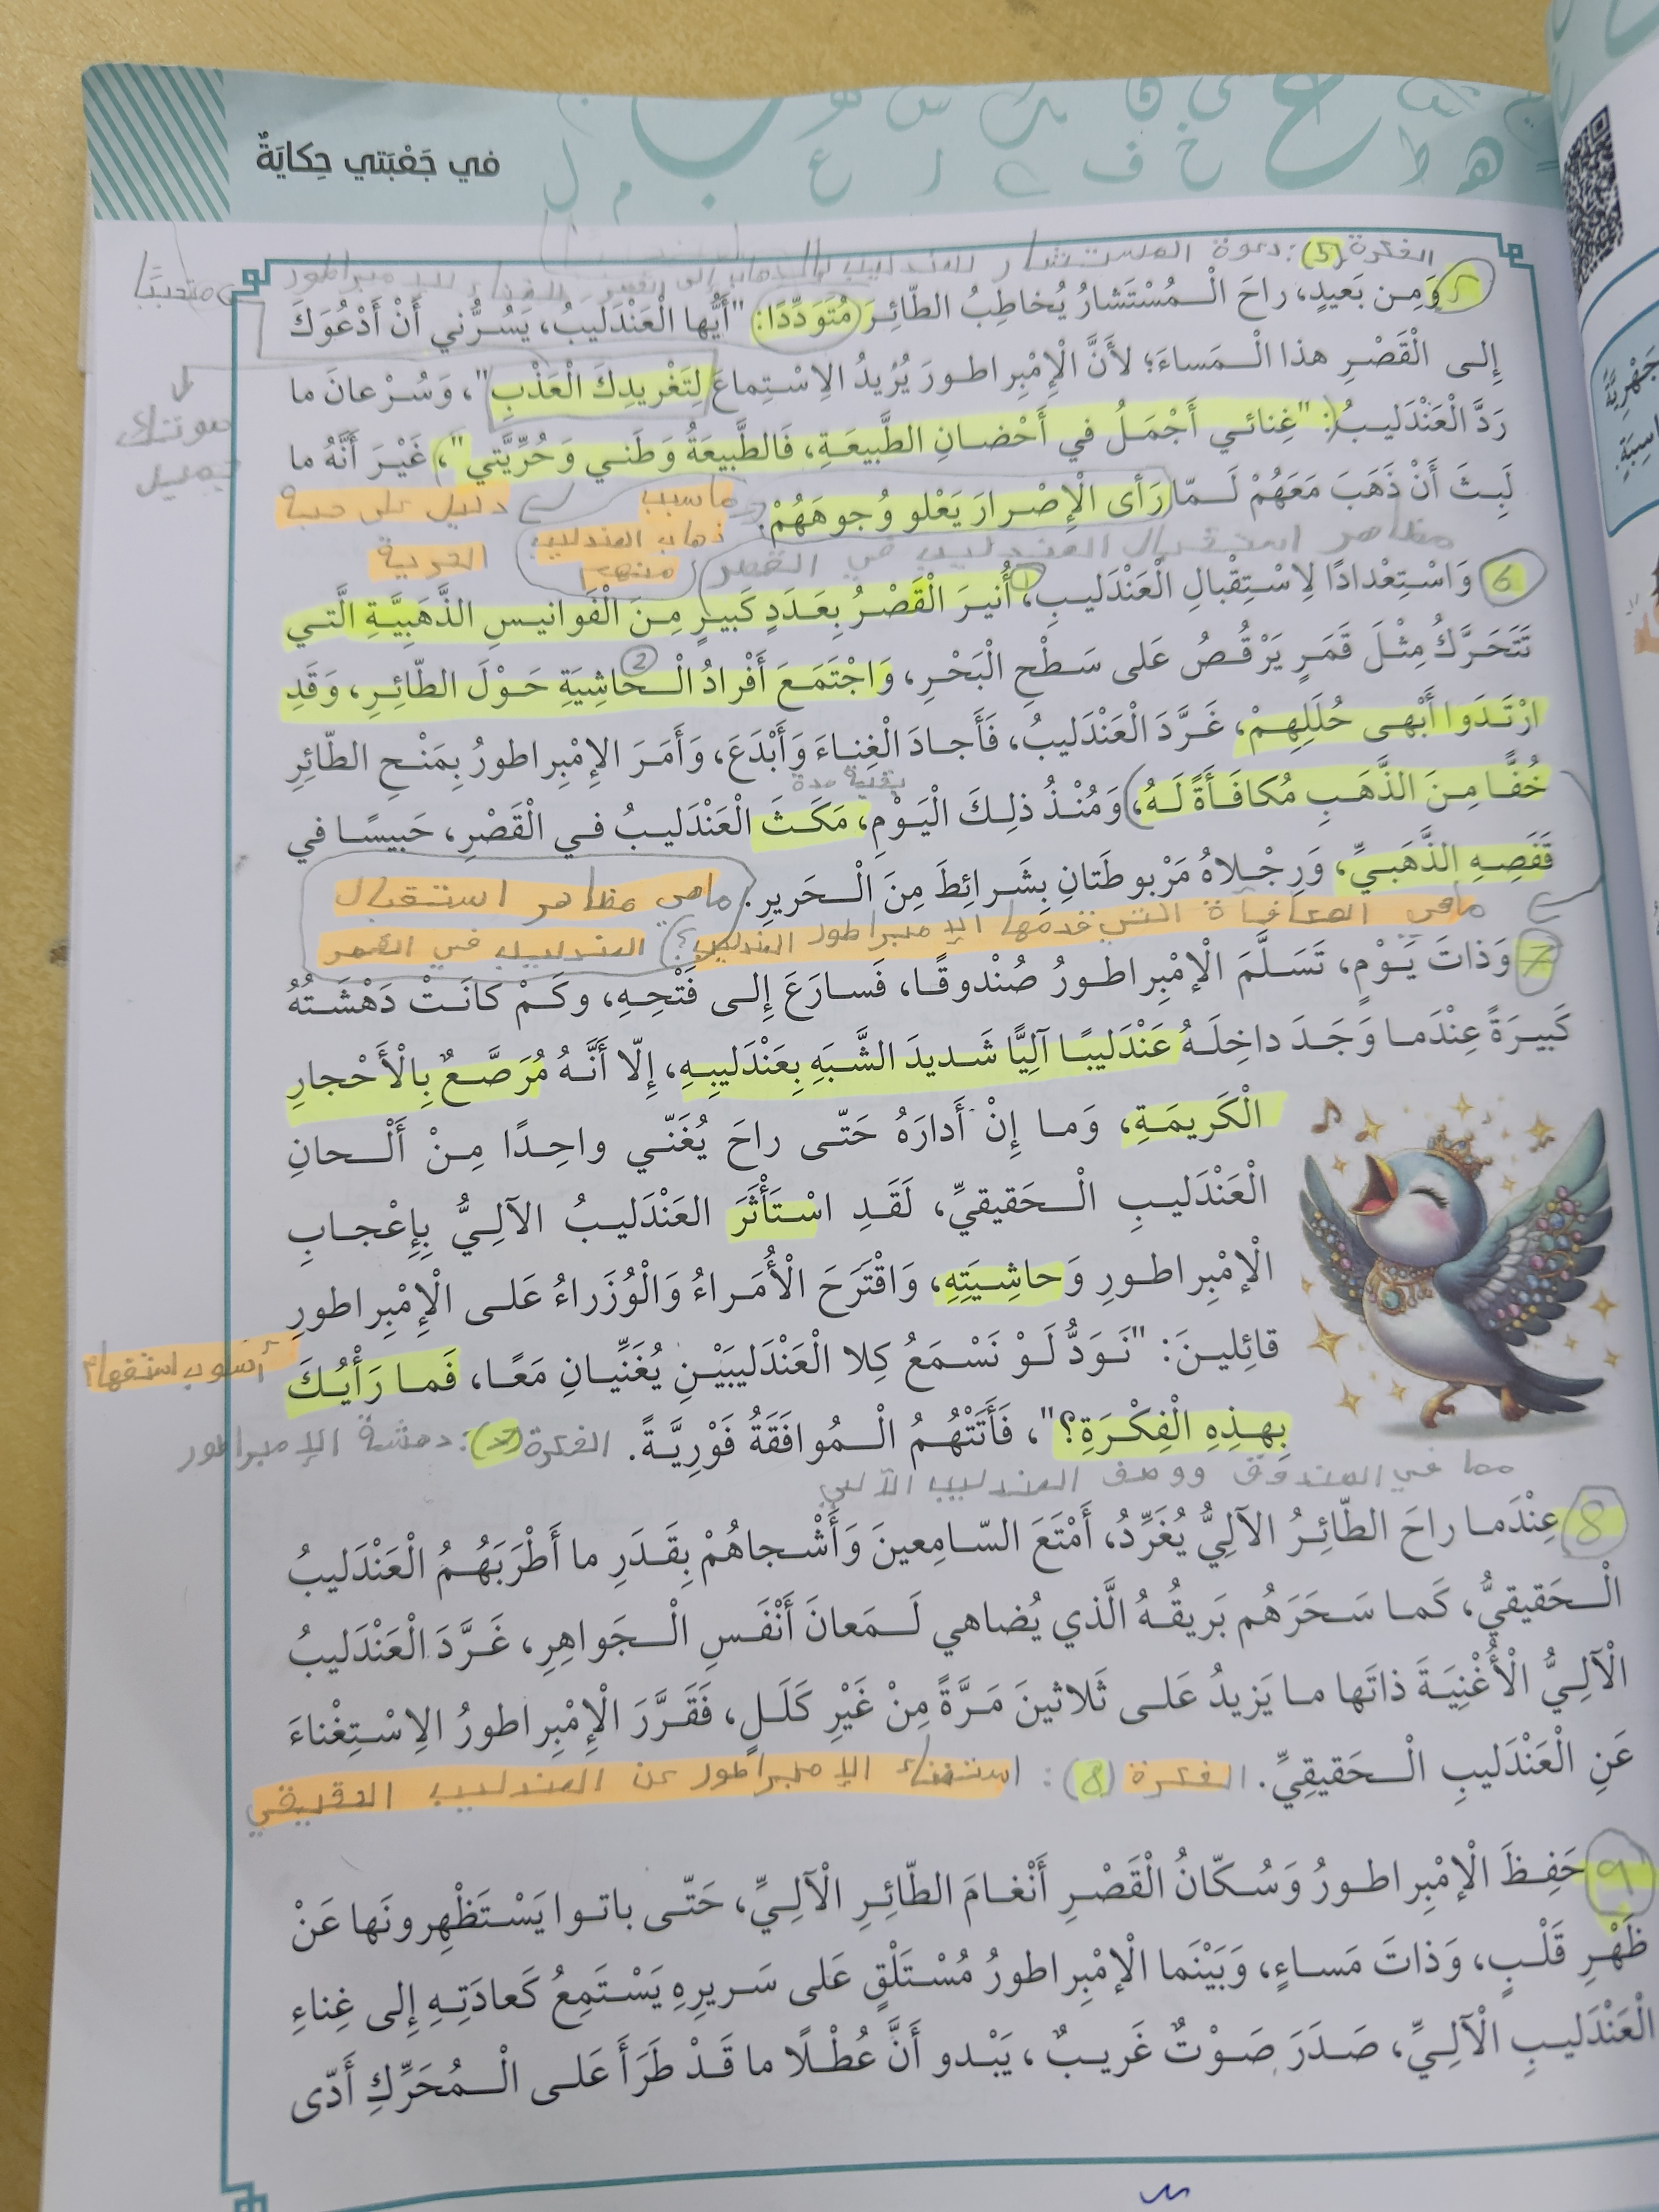 في جَعْبَتي حِكايَةٌ
الفكرة (5): دعوة المستشار للعندليب بالذهاب إلى القصر والغناء للإمبراطور
متحببًا
5 وَمِن بَعيدٍ، راحَ الْمُسْتَشارُ يُخاطِبُ الطّائِرَ مُتَوَدِّدًا: "أَيُّها الْعَنْدَليبُ، يَسُرُّني أَنْ أَدْعُوَكَ
إِلى الْقَصْرِ هذا الْمَساءَ؛ لأَنَّ الْإِمْبِراطورَ يُرُيدُ الاِسْتِماعَ لِتَغْريدِكَ الْعَذْبِ"، وَسُرْعانَ ما
صوتك
جميل
رَدَّ الْعَنْدَليبُ: "غِنائي أَجْمَلُ في أَحْضانِ الطَّبيعَةِ، فَالطَّبيعَةُ وَطَني وَحُرِّيَّتي"، غَيْرَ أَنَّهُ ما
لَبِثَ أَنْ ذَهَبَ مَعَهُمْ لَمّا رَأى الْإِصْرارَ يَعْلو وُجوهَهُمْ.
ما سبب
ذهاب العندليب
معهم
دليل على حبه
الحرية
مظاهر استقبال العندليب في القصر
6 وَاسْتِعْدادًا لِاسْتِقْبالِ الْعَنْدَليبِ، 1 أُنيرَ الْقَصْرُ بِعَدَدٍ كَبيرٍ مِنَ الْفَوانيسِ الذَّهَبِيَّةِ الَّتي
تَتَحَرَّكُ مِثْلَ قَمَرٍ يَرْقُصُ عَلى سَطْحِ الْبَحْرِ، 2 وَاجْتَمَعَ أَفْرادُ الْحاشِيَةِ حَوْلَ الطّائِرِ، وَقَدِ
ارْتَدَوا أَبْهى حُلَلِهِمْ، غَرَّدَ الْعَنْدَليبُ، فَأَجادَ الْغِناءَ وَأَبْدَعَ، وَأَمَرَ الإِمْبِراطورُ بِمَنْحِ الطّائِرِ
بقي مدة
خُفًّا مِنَ الذَّهَبِ مُكافَأَةً لَهُ، وَمُنْذُ ذلِكَ الْيَوْمِ، مَكَثَ الْعَنْدَليبُ في الْقَصْرِ، حَبيسًا في
قَفَصِهِ الذَّهَبيِّ، وَرِجْلاهُ مَرْبوطَتَانِ بِشَرائِطَ مِنَ الْحَريرِ.
ماهي مظاهر استقبال
العندليب في القصر
ماهي المكافأة التي قدمها الإمبراطور للعندليب؟
7 وَذاتَ يَوْمٍ، تَسَلَّمَ الْإِمْبِراطورُ صُنْدوقًا، فَسارَعَ إِلى فَتْحِهِ، وكَمْ كانَتْ دَهْشَتُهُ
كَبيرَةً عِنْدَما وَجَدَ داخِلَهُ عَنْدَليبًا آلِيًّا شَديدَ الشَّبَهِ بِعَنْدَليبِهِ، إِلّا أَنَّهُ مُرَصَّعٌ بِالْأَحْجارِ
الْكَريمَةِ، وَما إِنْ أَدارَهُ حَتّى راحَ يُغَنّي واحِدًا مِنْ أَلْحانِ
الْعَنْدَليبِ الْحَقيقيِّ، لَقَدِ اسْتَأْثَرَ العَنْدَليبُ الآلِيُّ بِإِعْجابِ
الْإِمْبِراطورِ وَحاشِيَتِهِ، وَاقْتَرَحَ الْأُمَراءُ وَالْوُزَراءُ عَلى الْإِمْبِراطورِ
قائِلينَ: "نَوَدُّ لَوْ نَسْمَعُ كِلا الْعَنْدَليبَيْنِ يُغَنِّيانِ مَعًا، فَما رَأْيُكَ
أسلوب استفهام
بِهذِهِ الْفِكْرَةِ؟"، فَأَتَتْهُمُ الْمُوافَقَةُ فَوْرِيَّةً.
الفكرة (7): دهشة الإمبراطور
مما في الصندوق ووصف العندليب الآلي
8 عِنْدَما راحَ الطّائِرُ الآلِيُّ يُغَرِّدُ، أَمْتَعَ السّامِعينَ وَأَشْجاهُمْ بِقَدَرِ ما أَطْرَبَهُمُ الْعَنْدَليبُ
الْحَقيقيُّ، كَما سَحَرَهُم بَريقُهُ الَّذي يُضاهي لَمَعانَ أَنْفَسِ الْجَواهِرِ، غَرَّدَ الْعَنْدَليبُ
الْآلِيُّ الْأُغْنِيَةَ ذاتَها ما يَزيدُ عَلى ثَلاثينَ مَرَّةً مِنْ غَيْرِ كَلَلٍ، فَقَرَّرَ الْإِمْبِراطورُ الاِسْتِغْناءَ
عَنِ الْعَنْدَليبِ الْحَقيقيِّ.
الفكرة (8): استغناء الإمبراطور عن العندليب الحقيقي
9 حَفِظَ الْإِمْبِراطورُ وَسُكّانُ الْقَصْرِ أَنْغامَ الطّائِرِ الْآلِيِّ، حَتّى باتوا يَسْتَظْهِرونَها عَنْ
ظَهْرِ قَلْبٍ، وَذاتَ مَساءٍ، وَبَيْنَما الْإِمْبِراطورُ مُسْتَلْقٍ عَلى سَريرِهِ يَسْتَمِعُ كَعادَتِهِ إِلى غِناءِ
الْعَنْدَليبِ الْآلِيِّ، صَدَرَ صَوْتٌ غَريبٌ، يَبْدو أَنَّ عُطْلًا ما قَدْ طَرَأَ عَلى الْمُحَرِّكِ أَدّى